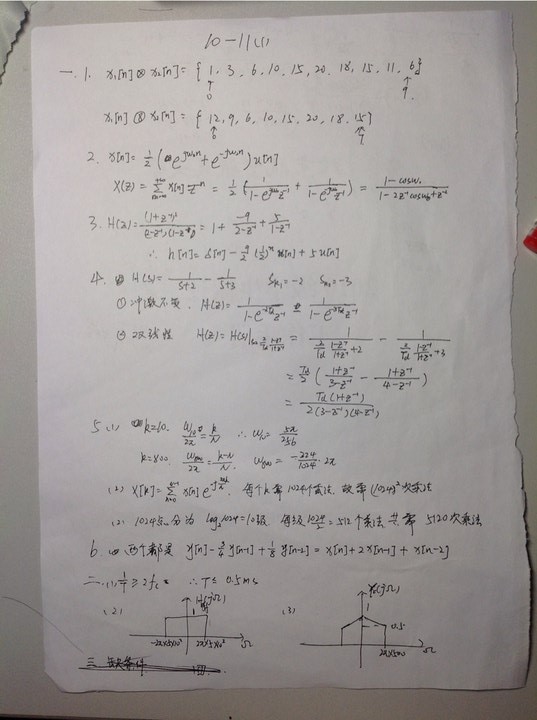 10-11(1)
一. 1. x₁[n] ⊗ x₂[n] = { 1, 3, 6, 10, 15, 20, 18, 15, 11, 6}
↑ 0 ↑ 9
x₁[n] ⑧ x₂[n] = { 12, 9, 6, 10, 15, 20, 18, 15}
↑ 0 ↑ 7
2. x[n] = 1/2 (e^{jω₀n} + e^{-jω₀n}) u[n]
X(z) = Σ_{n=-∞}^{+∞} x[n] z^{-n} = 1/2 ( 1/(1-e^{jω₀}z^{-1}) + 1/(1-e^{-jω₀}z^{-1}) ) = (1-cosω₀)/(1-2z^{-1}cosω₀+z^{-2})
3. H(z) = (1+z^{-1})²/((2-z^{-1})(1-z^{-1})) = 1 + -9/(2-z^{-1}) + 5/(1-z^{-1})
∴ h[n] = δ[n] - 9/2 (1/2)^n u[n] + 5u[n]
4. H(s) = 1/(s+2) - 1/(s+3) S_{k1} = -2 S_{k2} = -3
① 冲激不变. H(z) = 1/(1-e^{-2Td}z^{-1}) - 1/(1-e^{-3Td}z^{-1})
② 双线性 H(z) = H(s)|_{s=2/Td (1-z^{-1})/(1+z^{-1})} = 1/(2/Td (1-z^{-1})/(1+z^{-1}) +2) - 1/(2/Td (1-z^{-1})/(1+z^{-1}) +3)
= Td/2 ( (1+z^{-1})/(3-z^{-1}) - (1+z^{-1})/(4-z^{-1}) )
= Td(1+z^{-1})/(2(3-z^{-1})(4-z^{-1}))
5. (1) k=10. ω₁₀/2π = k/N ∴ ω₁₀ = 5π/256
k=800. ω₈₀₀/2π = (k-N)/N. ω₈₀₀ = -224/1024 · 2π
(2) X[k] = Σ_{n=0}^{N-1} x[n] e^{-j2πkn/N}. 每个k需1024个乘法. 故需(1024)²次乘法
(2) 1024点分为 log₂1024=10级. 每级1024/2=512个乘法 共需 5120次乘法
6. 两个都是 y[n] - 3/4 y[n-1] + 1/8 y[n-2] = x[n] + 2x[n-1] + x[n-2]
二. (1) 1/T ≥ 2fc ∴ T ≤ 0.5ms
(2) H(jΩ) 1 -2π×5×10² 2π×5×10² Ω
(3) Y(jΩ) 1 0.5 2π×500 Ω